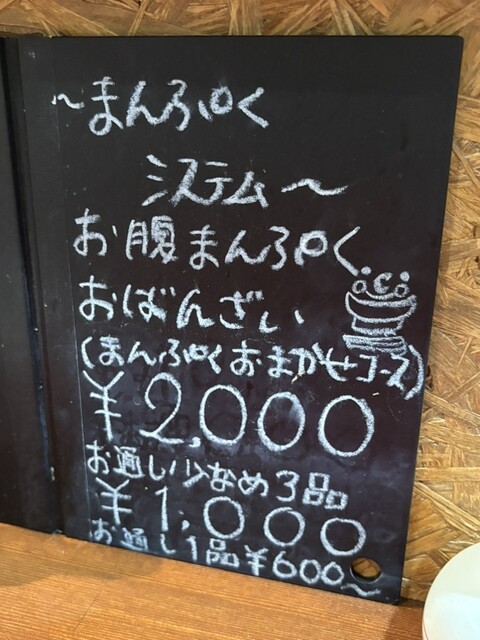 ～まんぷく
システム～
お腹まんぷく
おばんざい
(まんぷくおまかせコース)
¥2,000
お通し少なめ3品
¥1,000
お通し1品¥600～